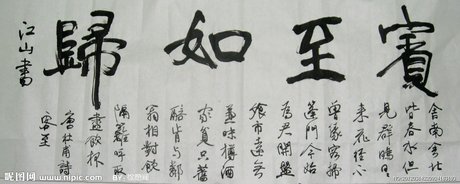 賓至如歸
舍南舍北
皆春水但
見群鷗日
來花徑不
曾緣客掃
蓬門今始
為君開盤
飧市遠無
兼味樽酒
家貧只舊
醅肯与鄰
翁相對飲
隔籬呼取
盡餘杯
杜甫詩
客至
江山書
昵图网 www.nipic.com
BY: